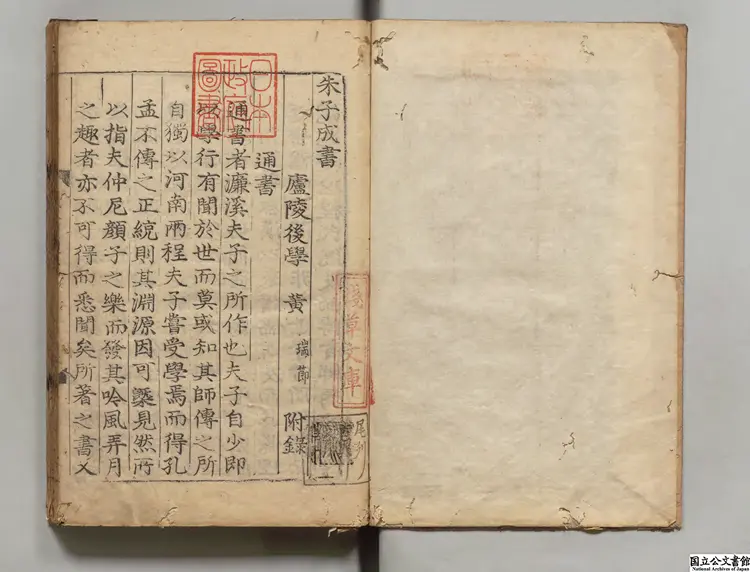 朱子成書
廬陵後學 黄 瑞節 附錄
通書
通書者濂溪夫子之所作也夫子自少即
以學行有聞於世而莫或知其師傳之所
自獨以河南兩程夫子嘗受學焉而得孔
孟不傳之正統則其淵源因可槩見然所
以指夫仲尼顔子之樂而發其吟風弄月
之趣者亦不可得而悉聞矣所著之書又
日本
政府
圖書
淺草文庫
国立公文書館
National Archives of Japan